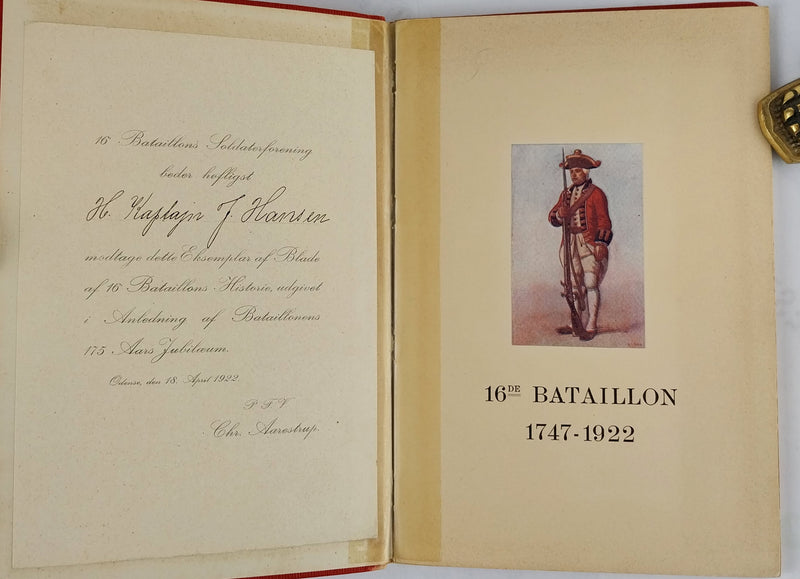 16' Bataillons Soldaterforening
beder høfligst
H. Kaptajn J. Hansen
modtage dette Eksemplar af Blade
af 16' Bataillons Historie, udgivet
i Anledning af Bataillonens
175 Aars Jubilæum.
Odense, den 18. April 1922.
P. T. V.
Chr. Aarestrup.
16DE BATAILLON
1747-1922